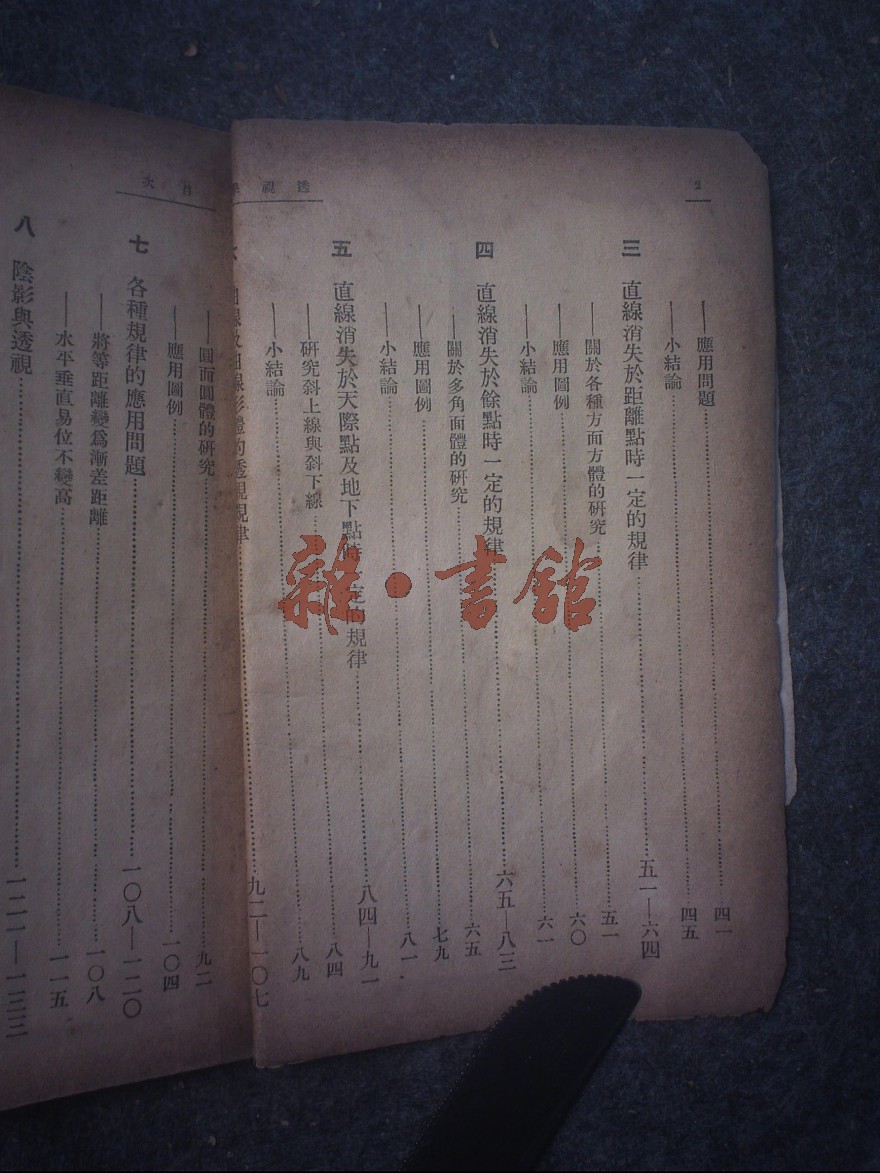 2
透視學
——應用問題……四一
——小結論……四五
三 直線消失於距離點時一定的規律……五一—六四
——關於各種方面方體的研究……五一
——應用圖例……六〇
——小結論……六一
四 直線消失於餘點時一定的規律……六五—八三
——關於多角面體的研究……六五
——應用圖例……七九
——小結論……八一
五 直線消失於天際點及地下點時一定的規律……八四—九一
——研究斜上線與斜下線……八四
——小結論……八九
線及曲線形體的透視規律……九二—一〇七
目次
——圓面圓體的研究……九二
——應用圖例……一〇四
七 各種規律的應用問題……一〇八—一二〇
——將等距離變爲漸差距離……一〇八
——水平垂直易位不變高……一一五
八 陰影與透視……一二一—一三三
雜·書館